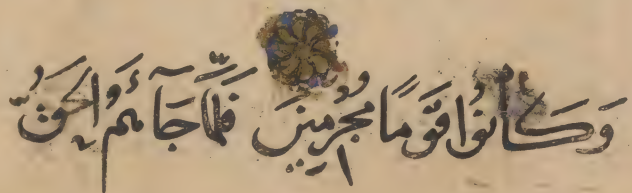 وَكَانُوا قَوْمًا مُجْرِمِينَ فَلَمَّا جَآءَهُمُ الْحَقُّ